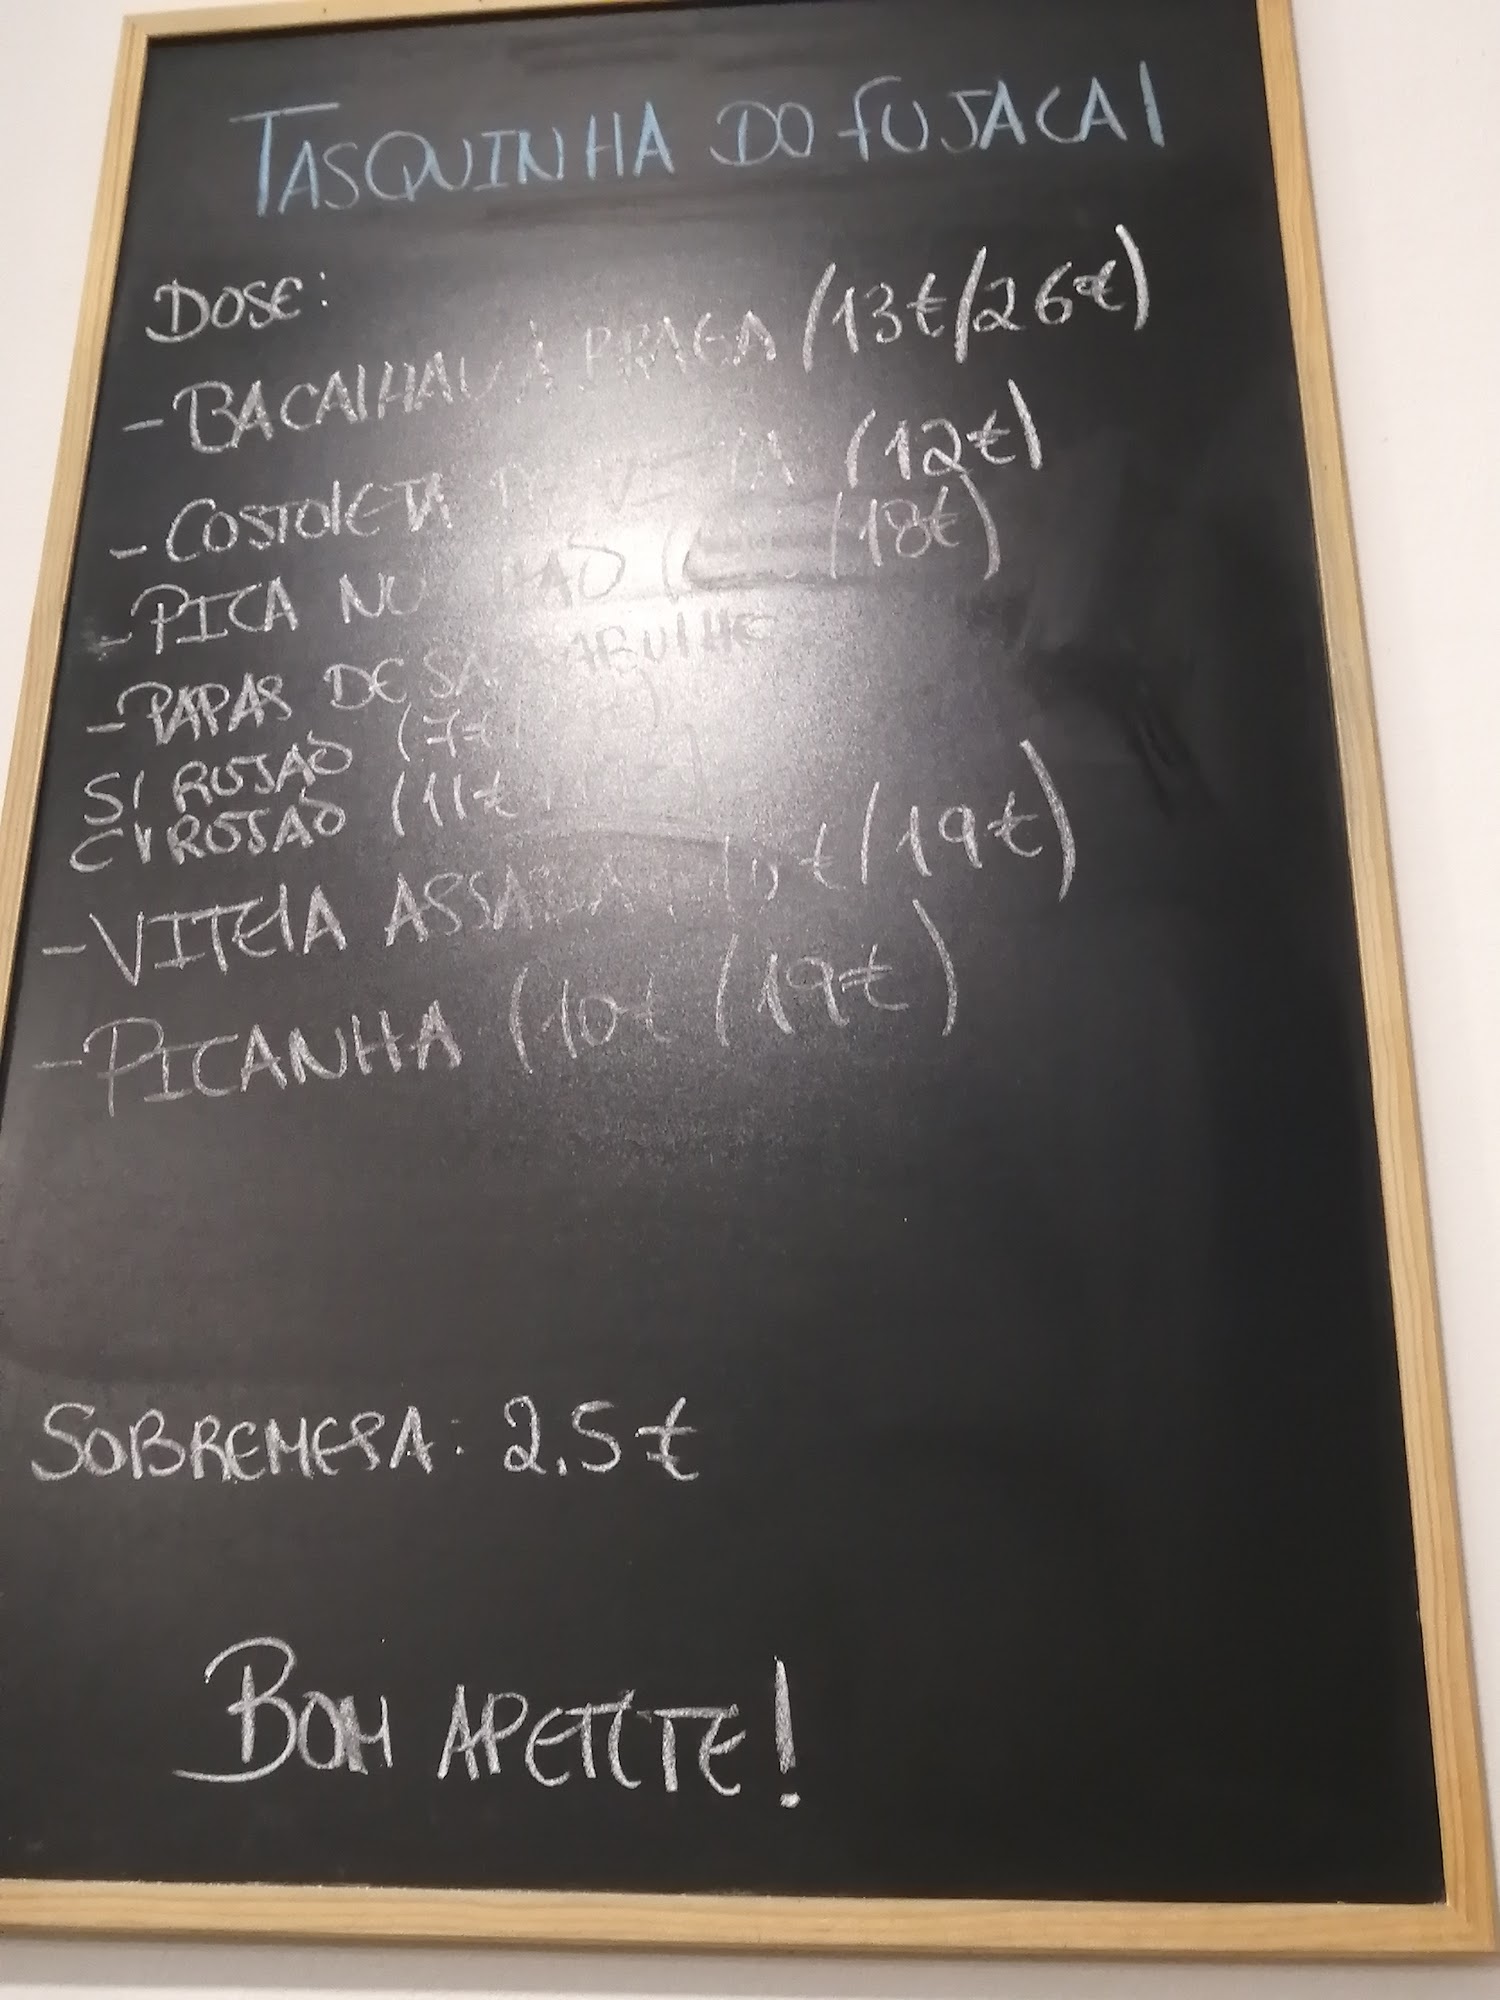 TASQUINHA DO FUJACAL
DOSE:
- BACALHAU À BRAGA (13€/26€)
- COSTOLETA (12€)
- PICA NO (18€)
- PAPAS DE SARRABULHE
S/ ROJAO (7€/
C/ ROJAO (11€
- VITELA ASSADA /19€)
- PICANHA (10€ /19€)
SOBREMESA: 2.5€
BOM APETITE!